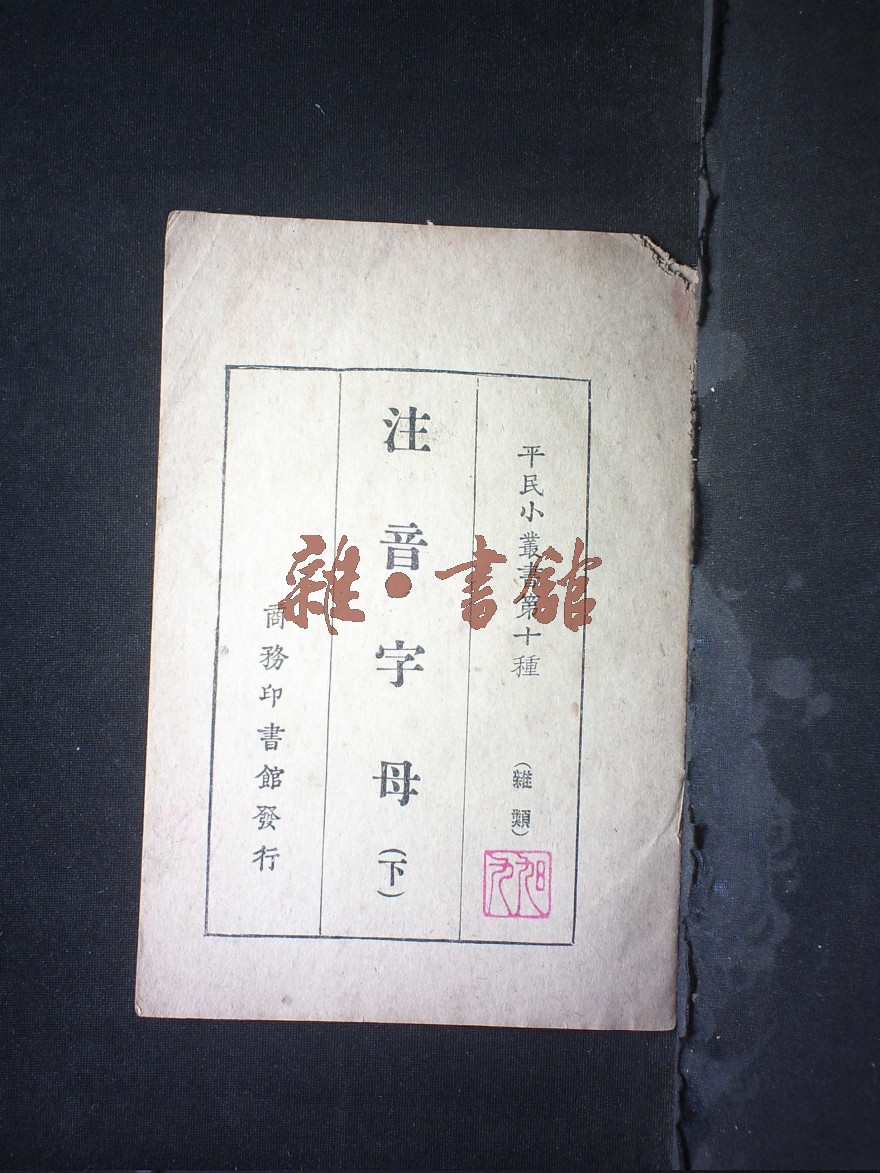 平民小叢書第十種
(雜類)
注音字母(下)
商務印書館發行
雜·書館